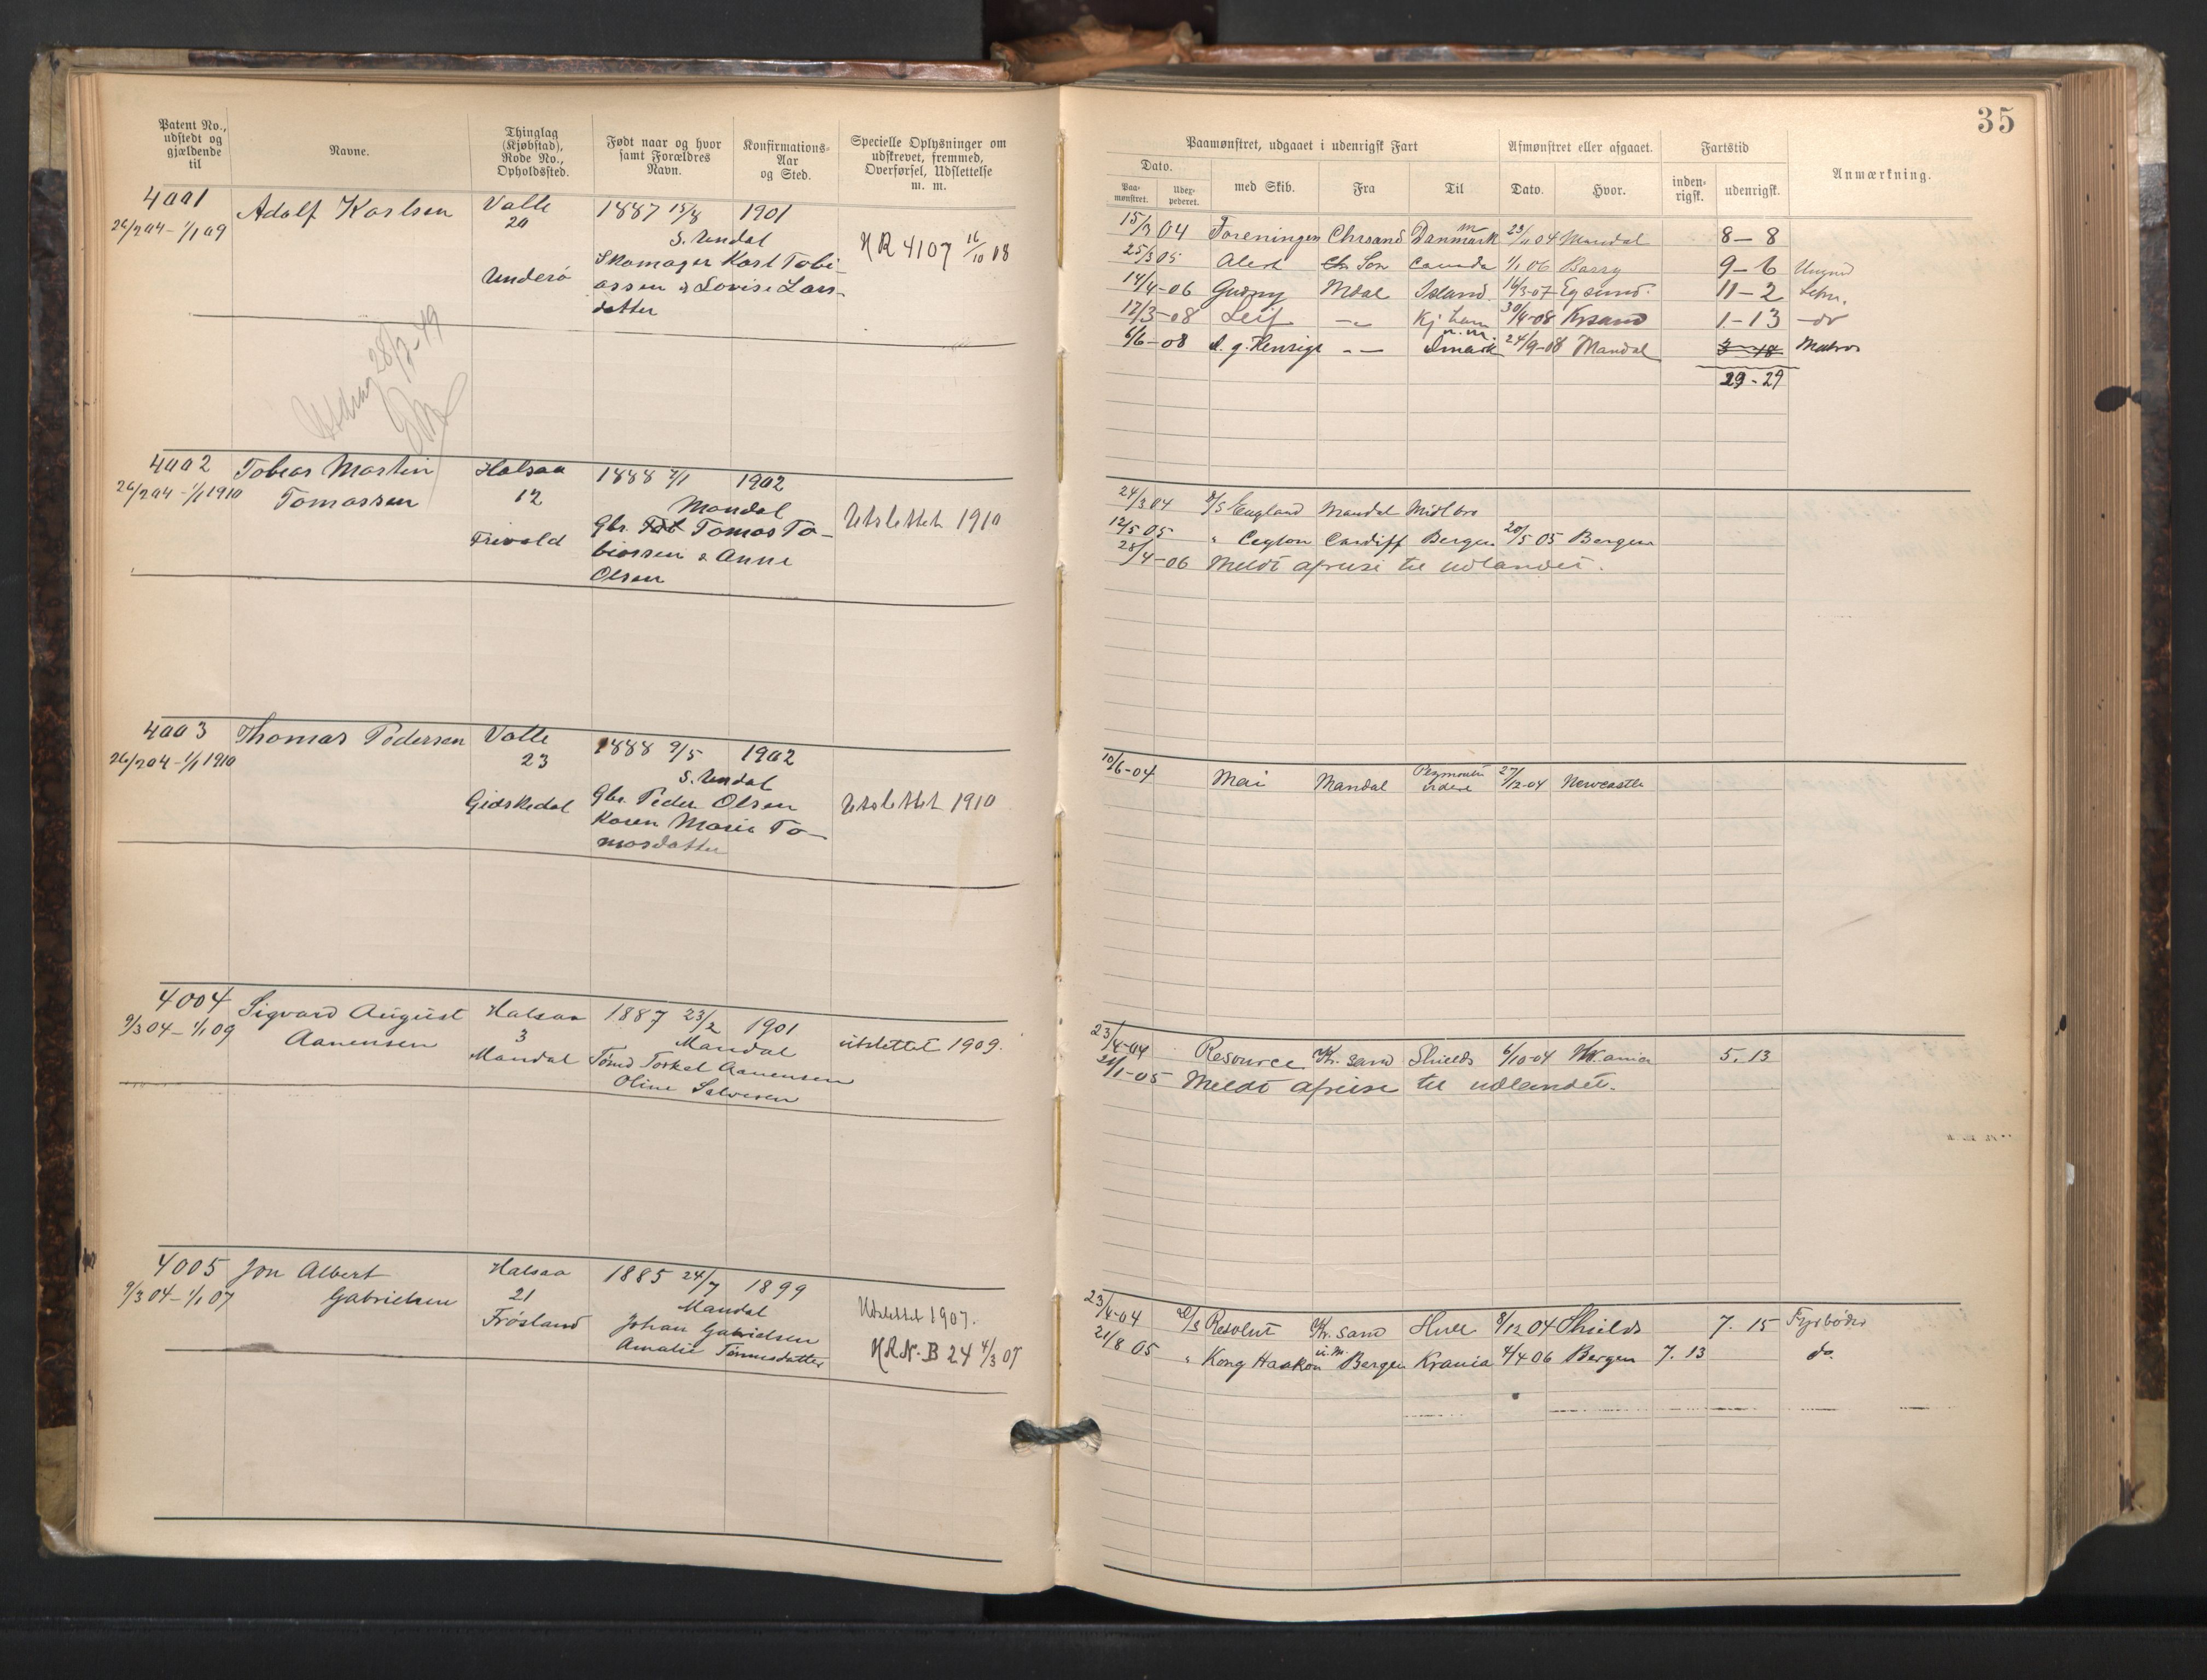 35
Patent No., udstedt og gjældende til
Navne.
Thinglag (Kjøbstad), Rode No., Opholdssted.
Født naar og hvor samt Forældres Navn.
Konfirmations-Aar og Sted.
Specielle Oplysninger om udskrevet, fremmed, Overførsel, Udslettelse m. m.
Paamønstret, udgaaet i udenrigsk Fart
Afmønstret eller afgaaet.
Fartstid
Anmærkning.
Dato.
Paa-mønstret.
Udex-pederet.
med Skib.
Fra
Til
Dato.
Hvor.
inden-rigsk.
udenrigsk.
4001 Adolf Karlsen Valle 1887 15/8 1901
26/2 04 - 1/1 09 20 S. Undal
Underö Skomager Karl Tobi-
assen & Lovise Lars-
datter
NR 4107 16/10 08
28/3-49
15/3 04 Foreningen Chrsand Danmark m 23/11 04 Mandal 8-8
25/3 05 Alert Son Canada 1/1 06 Barry 9-6
14/4-06 Gudny Mdal Island 14/3-07 Egsund. 11-2
17/3-08 Leif -"- Kj havn 30/4-08 Krsand 1-13 do
6/6-08 -"- Dmark 24/9-08 Mandal Matros
29-29
4002 Tobias Martin Halsaa 1888 7/1 1902
26/2 04 - 1/1 1910 Tomassen 12 Mandal
Frivold Gbr. Tomas To-
biassen & Anne
Olsen
Utslettet 1910
24/3 04 D/S England Mandal Midlbro
12/5 05 " Ceylon Cardiff Bergen 20/5 05 Bergen
28/4-06 Meldt afreise til udlandet.
4003 Thomas Pedersen Valle 1888 9/5 1902
26/2 04 - 1/1 1910 23 S. Undal
Gidskedal Gbr. Peder Olsen
Karen Marie To-
masdatter
Utslettet 1910
10/6-04 Mai Mandal Plymouth videre 27/12-04 Newcastle
4004 Sigvard August Halsaa 1887 23/2 1901
9/3 04 - 1/1 09 Aanensen 3 Mandal
Mandal Tömd Torkel Aanensen
Oline Salvesen
utslettet 1909.
23/4-04 Resource Kr. sand Shields 6/10-04 Krania 5. 13
21/1-05 Meldt afreise til udlandet.
4005 Jon Albert Halsaa 1885 24/7 1899
9/3 04 - 1/1 07 Gabrielsen 21 Mandal
Frösland Johan Gabrielsen
Amalie Tönnesdatter
Utslettet 1907.
NRN. B 24 4/3 07
23/4-04 D/S Resolut Kr. sand Hull 9/12 04 Shields 7. 15 Fyrböder
21/8 05 " Kong Haakon u.m. Bergen Krania 4/4 06 Bergen 7. 13 do.